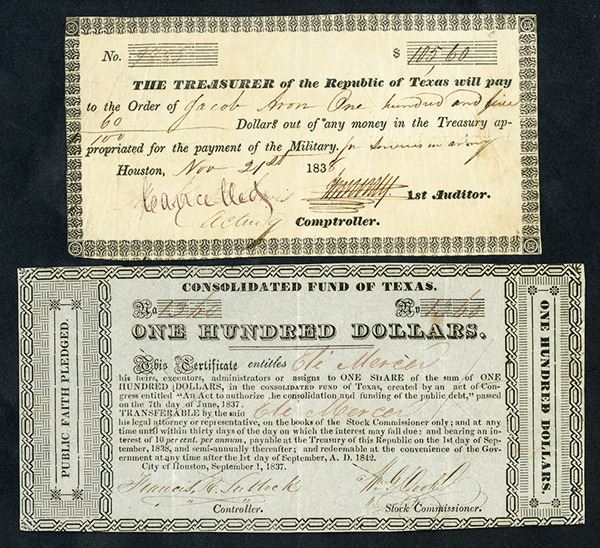 No. $ 105,60
THE TREASURER of the Republic of Texas will pay
to the Order of Jacob Aron One hundred and five
60 Dollars out of any money in the Treasury ap-
100
propriated for the payment of the Military. for services in army
Houston, Nov 21st 1836
Cancelled 1st Auditor.
Acting Comptroller.
CONSOLIDATED FUND OF TEXAS.
No No
ONE HUNDRED DOLLARS.
This Certificate entitles Eli Mercer
his heirs, executors, administrators or assigns to ONE SHARE of the sum of ONE
HUNDRED DOLLARS, in the CONSOLIDATED FUND of Texas, created by an act of Con-
gress entitled "An Act to authorize the consolidation and funding of the public debt," passed
on the 7th day of June, 1837.
TRANSFERABLE by the said Eli Mercer
his legal attorney or representative, on the books of the Stock Commissioner only; and at any
time until within thirty days of the day on which the interest may fall due: and bearing an in-
terest of 10 per cent. per annum, payable at the Treasury of this Republic on the 1st day of Sep-
tember, 1838, and semi-annually thereafter; and redeemable at the convenience of the Gov-
ernment at any time after the 1st day of September, A. D. 1842.
City of Houston, September 1, 1837.
Francis R. Lubbock
Controller. Stock Commissioner.
PUBLIC FAITH PLEDGED.
ONE HUNDRED DOLLARS.